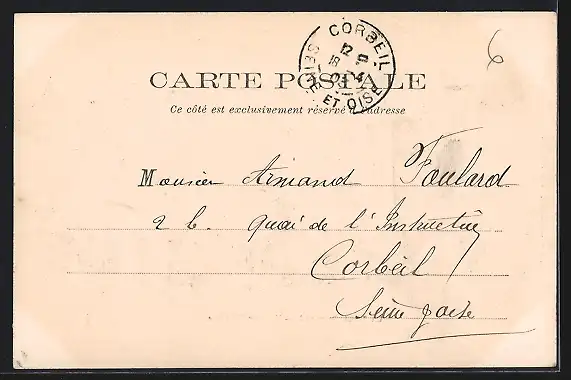 CORBEIL
SEINE ET OISE
6
CARTE POSTALE
Ce côté est exclusivement réservé à l'adresse
Monsieur Armand Foulard
2 b. quai de l'Instructeur
Corbeil
Seine &